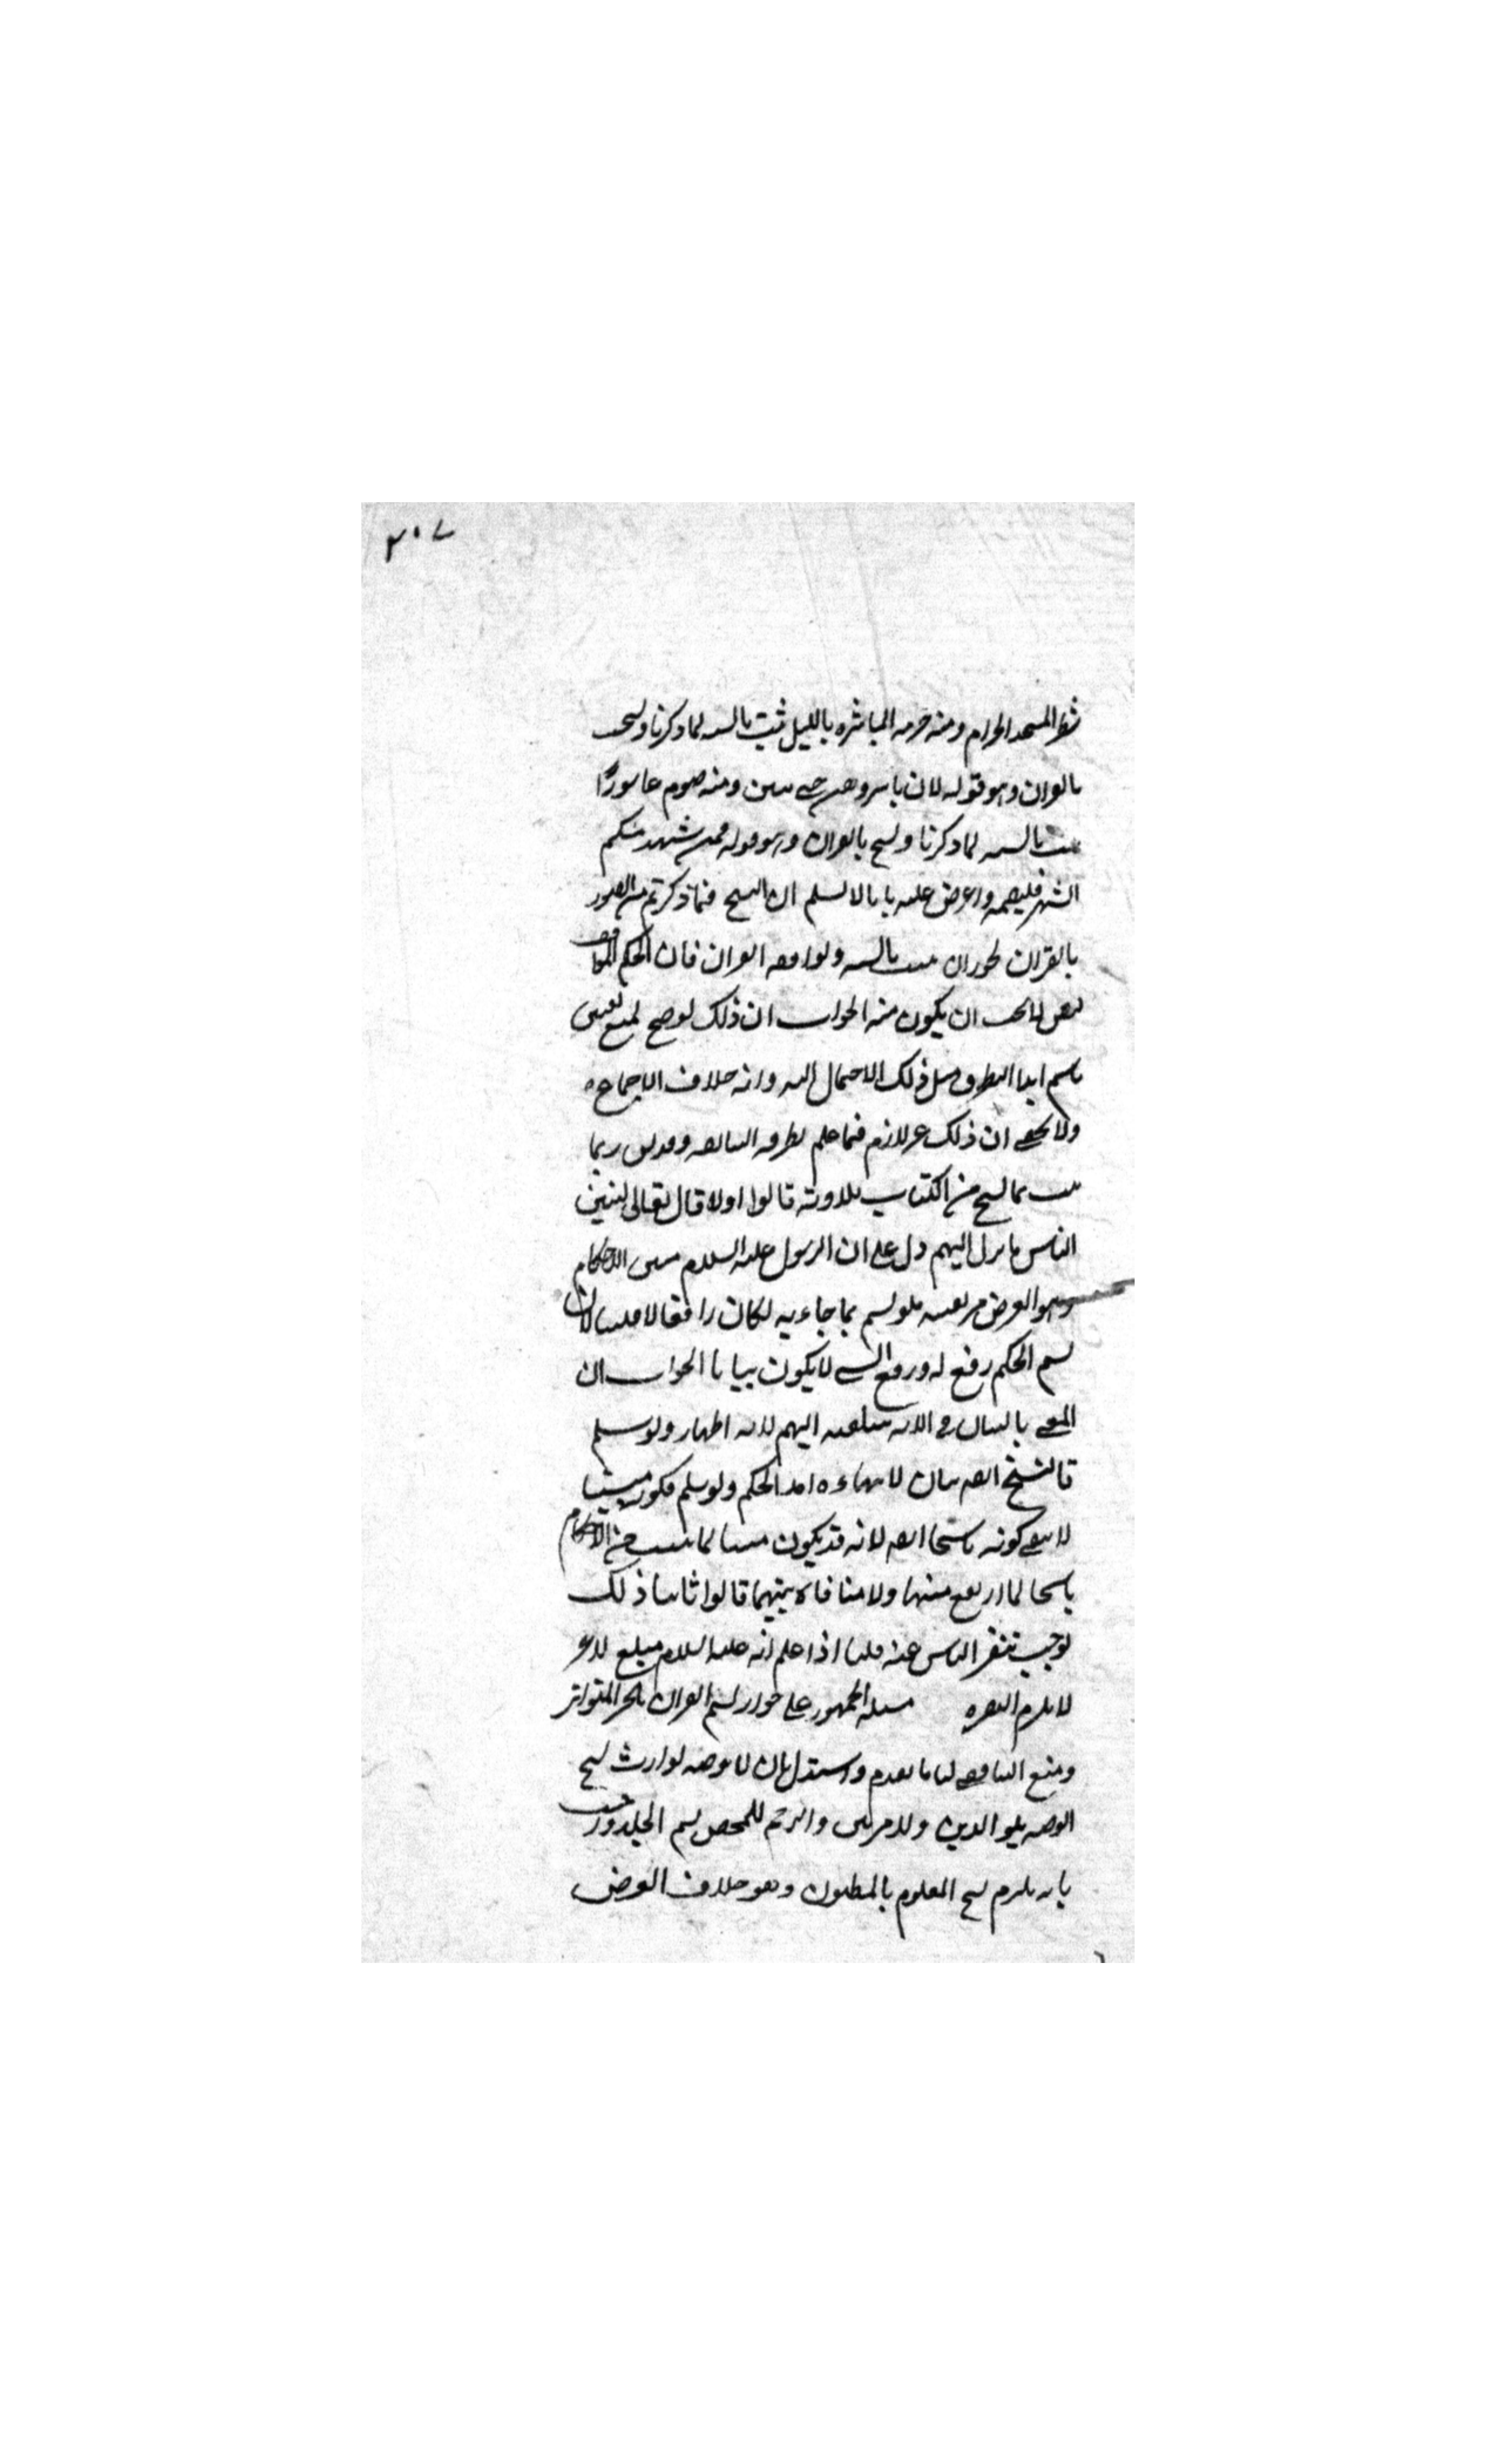 ٣٠٧
شطر المسجد الحرام ومنه حرمه المباشره بالليل ثبت بالسنه لما ذكرنا ونسخت
بالقران وهو قوله فالان باشروهن حتى يتبين ومنه صوم عاشورا
ثبت بالسنه لما ذكرنا ونسخ بالقران وهو قوله فمن شهد منكم
الشهر فليصمه واعترض عليه بانا لا نسلم ان النسخ فيما ذكرتم من الصور
بالقران لجواز ان ثبت بالسنه ولوافقه القران فان الحكم الموافق
لنص لا يجب ان يكون منه الجواب ان ذلك لو صح لمنع تعيين
ناسخ ابدا لتطرق مثل ذلك الاحتمال اليه وانه خلاف الاجماع
ولا يخفى ان ذلك غير لازم فيما علم بطريقه السابقه
ثبت بما نسخ من الكتاب تلاوته قالوا اولا قال تعالى لتبين
الناس ما نزل اليهم دل على ان الرسول عليه السلام مبين الاحكام
وهو الغرض من بعثه فلو نسخ بما جاء به لكان رافعا لا مبينا لان
نسخ الحكم رفع له ورفع الشي لا يكون بيانا الجواب ان
المعنى بالبيان في الايه تبليغه اليهم لانه اظهار ولو سلم
فالنسخ ايضا بيان لانتهاء امد الحكم ولو سلم فكونه مبينا
لا ينفي كونه ناسخا ايضا لانه قد يكون مبينا لما ثبت من الاحكام
ناسخا لما ارتفع منها ولا منافاه بينهما قالوا ثانيا ذلك
يوجب تنفر الناس عنه قلنا اذا علم انه عليه السلام مبلغ لا غير
لا يلزم النفره مسله الجمهور على جواز نسخ القران بالخبر المتواتر
ومنع الشافعي لنا ما تقدم واستدل بان لا وصيه لوارث نسخ
الوصيه للوالدين والاقربين والرجم للمحصن نسخ الجلد ورد
بانه يلزم نسخ المعلوم بالمظنون وهو خلاف الفرض